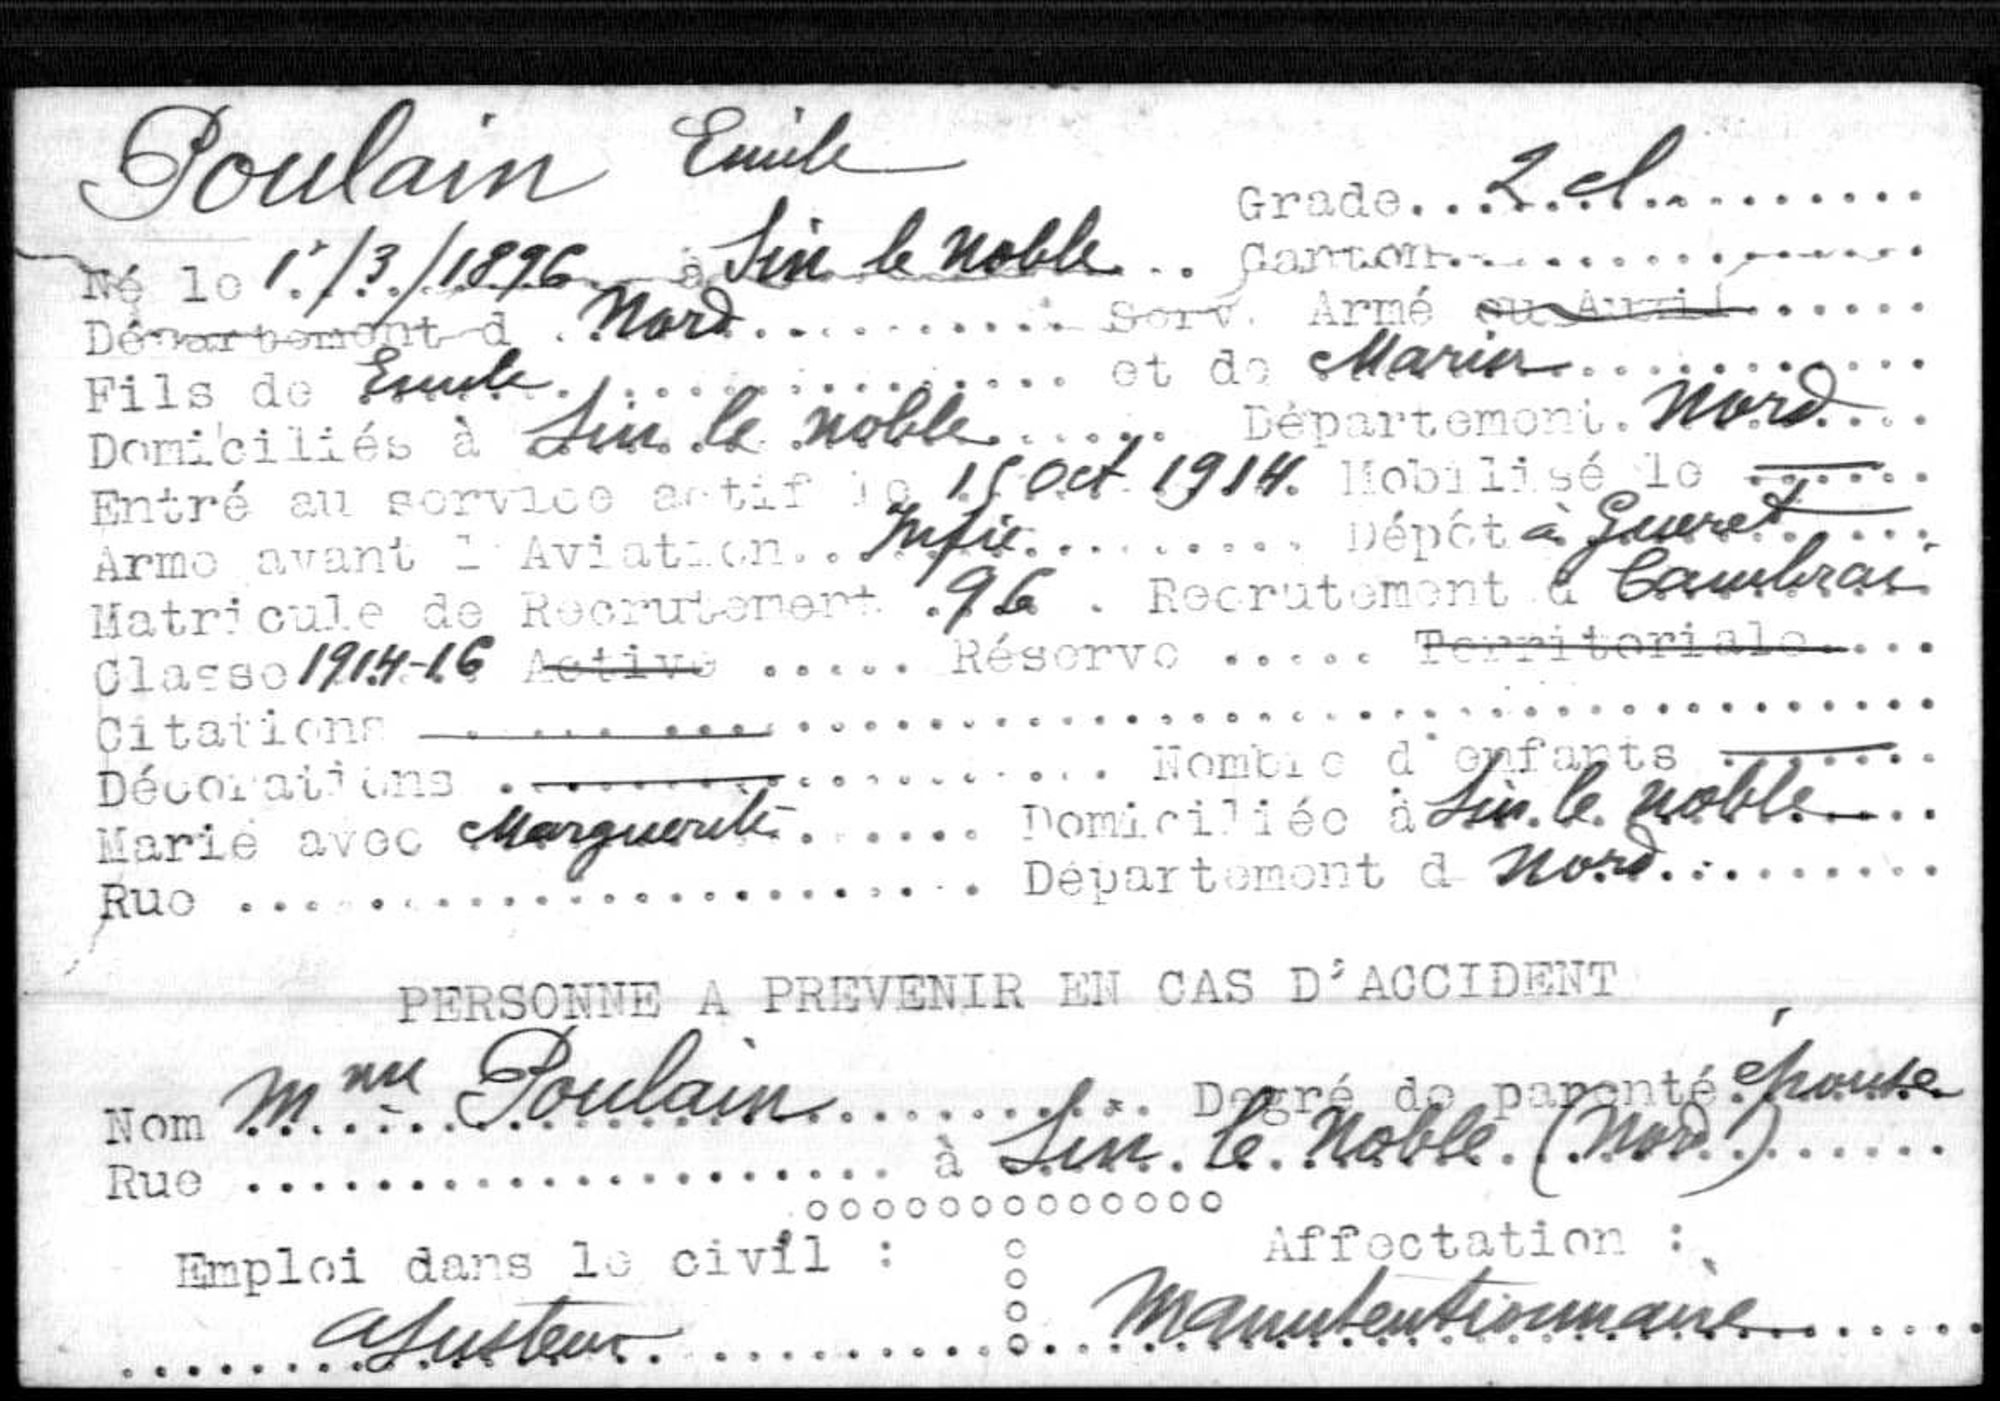 Poulain Emile
Grade 2 cl
Né le 1r/3/1896 à Sin le Noble Canton
Département d Nord Serv. Armé ou Auxil
Fils de Emile et de Maria
Domiciliés à Sin le noble Département Nord
Entré au service actif le 15 Oct 1914. Mobilisé le
Arme avant l'Aviation Infie Dépôt à Gueret
Matricule de Recrutement 96 Recrutement d Cambrai
Classe 1914-16 Active Réserve Territoriale
Citations
Décorations Nombre d'enfants
Marié avec Marguerite Domiciliée à Sin le noble
Rue Département d Nord
PERSONNE A PREVENIR EN CAS D'ACCIDENT
Nom Mme Poulain Degré de parenté épouse
Rue à Sin le Noble (Nord)
Emploi dans le civil : Affectation :
Ajusteur Manutentionnaire